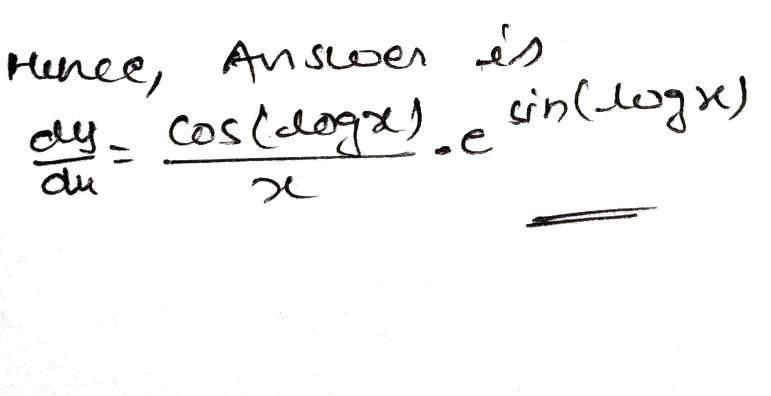 Hence, Answer is
dy/dx = cos(logx)/x . e^sin(logx)